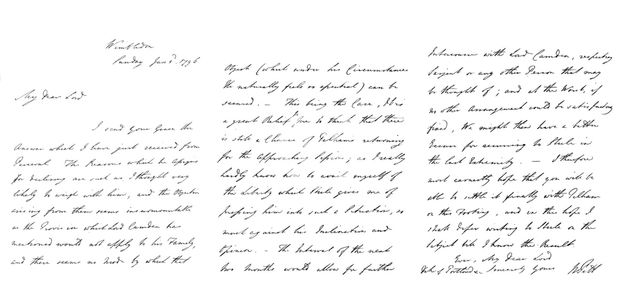 Wimbledon
Sunday Jan. 1796
My Dear Lord
I send your Grace the
Answer which I have just received from
Perceval The Reasons which he assigns
for declining are such as I thought very
likely to weigh with him, and the Objection
arising from them seems insurmountable
as the Provision which Lord Camden has
mentioned would not apply to his Family,
and there seems no mode by which that
Object (which under his Circumstances
He naturally feels so essential) can be
secured. – This being the Case, it is
a great Relief for me to think that there
is still a Chance of Pelham's returning
for the approaching Session, as I really
hardly know how to avail myself of
the Liberty which Steele gives me of
pressing him into such a Situation, so
much against his Inclination and
Opinion. – The Interval of the next
two Months would allow for further
Intercourse with Lord Camden, respecting
or any other Person that may
be thought of; and at the Worst, if
no other Arrangement could be satisfactorily
fixed, We might then have a better
for recurring to Steele in
the last Extremity. – I therefore
most earnestly hope that you will be
able to settle it finally with Pelham
on this Footing, and in this hope I
shall defer writing to Steele on the
subject till I know the Result
Ever, My Dear Lord
Duke of Portland Sincerely Yours W Pitt